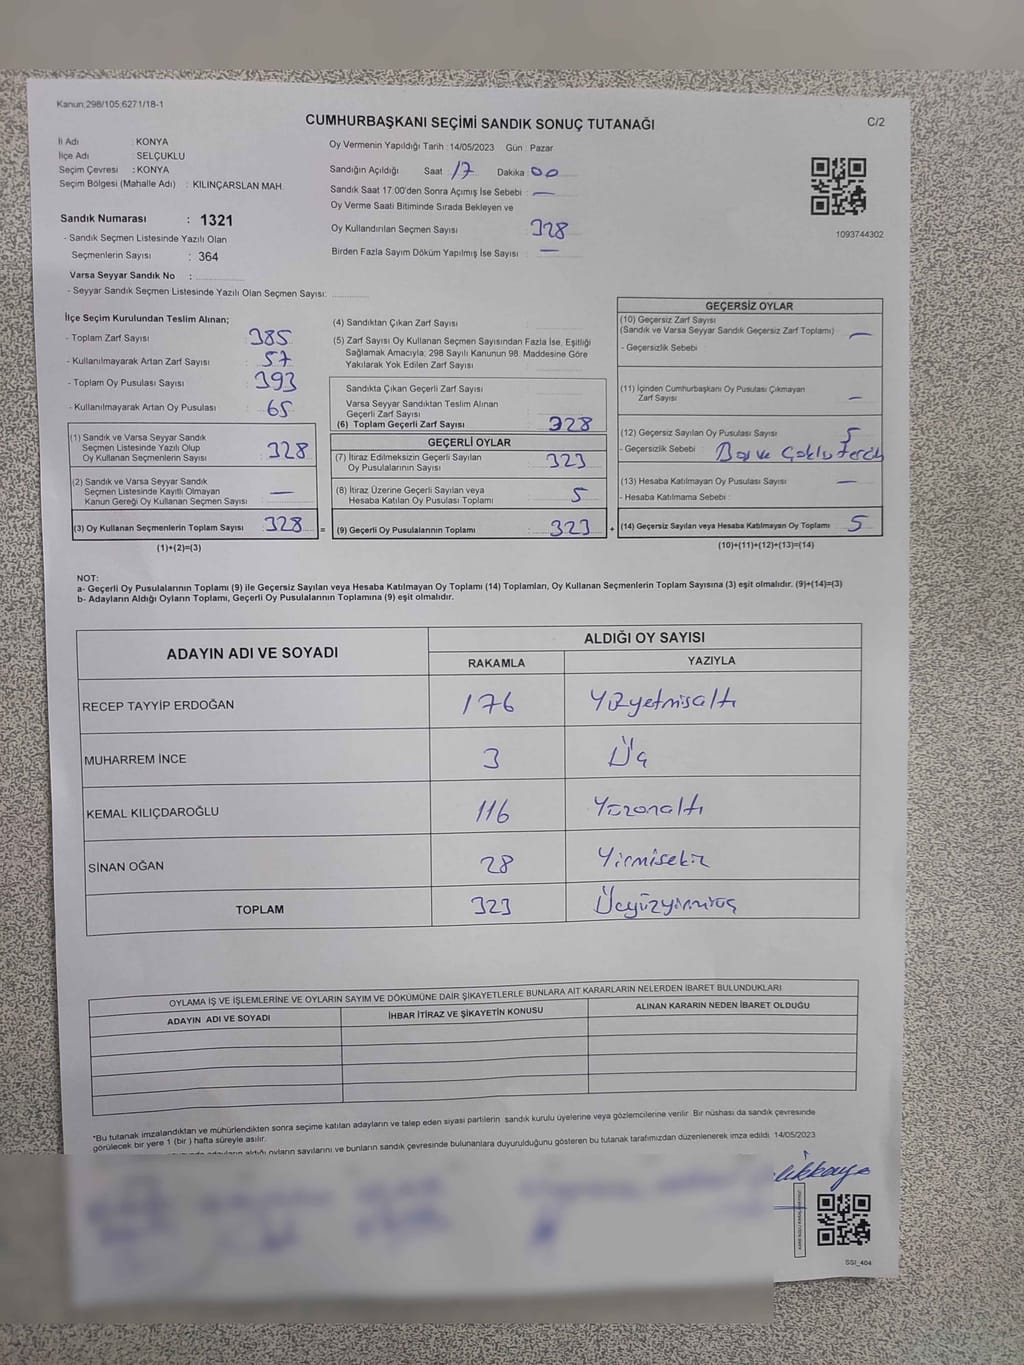 Kanun;298/105;6271/18-1
CUMHURBAŞKANI SEÇİMİ SANDIK SONUÇ TUTANAĞI
C/2
İl Adı : KONYA
İlçe Adı : SELÇUKLU
Seçim Çevresi : KONYA
Seçim Bölgesi (Mahalle Adı) : KILINÇARSLAN MAH.
Sandık Numarası : 1321
- Sandık Seçmen Listesinde Yazılı Olan
Seçmenlerin Sayısı : 364
Varsa Seyyar Sandık No :
- Seyyar Sandık Seçmen Listesinde Yazılı Olan Seçmen Sayısı:
Oy Vermenin Yapıldığı Tarih : 14/05/2023 Gün : Pazar
Sandığın Açıldığı Saat : 17 Dakika : 00
Sandık Saat 17:00'den Sonra Açımış İse Sebebi : —
Oy Verme Saati Bitiminde Sırada Bekleyen ve
Oy Kullandırılan Seçmen Sayısı : 328
Birden Fazla Sayım Döküm Yapılmış İse Sayısı : —
1093744302
İlçe Seçim Kurulundan Teslim Alınan;
- Toplam Zarf Sayısı : 385
- Kullanılmayarak Artan Zarf Sayısı : 57
- Toplam Oy Pusulası Sayısı : 393
- Kullanılmayarak Artan Oy Pusulası : 65
(1) Sandık ve Varsa Seyyar Sandık
Seçmen Listesinde Yazılı Olup
Oy Kullanan Seçmenlerin Sayısı : 328
(2) Sandık ve Varsa Seyyar Sandık
Seçmen Listesinde Kayıtlı Olmayan
Kanun Gereği Oy Kullanan Seçmen Sayısı : —
(3) Oy Kullanan Seçmenlerin Toplam Sayısı : 328 =
(1)+(2)=(3)
(4) Sandıktan Çıkan Zarf Sayısı :
(5) Zarf Sayısı Oy Kullanan Seçmen Sayısından Fazla İse, Eşitliği
Sağlamak Amacıyla; 298 Sayılı Kanunun 98. Maddesine Göre
Yakılarak Yok Edilen Zarf Sayısı :
Sandıkta Çıkan Geçerli Zarf Sayısı :
Varsa Seyyar Sandıktan Teslim Alınan
Geçerli Zarf Sayısı :
(6) Toplam Geçerli Zarf Sayısı : 328
GEÇERLİ OYLAR
(7) İtiraz Edilmeksizin Geçerli Sayılan
Oy Pusulalarının Sayısı : 323
(8) İtiraz Üzerine Geçerli Sayılan veya
Hesaba Katılan Oy Pusulası Toplamı : 5
(9) Geçerli Oy Pusulalarının Toplamı : 323 +
GEÇERSİZ OYLAR
(10) Geçersiz Zarf Sayısı
(Sandık ve Varsa Seyyar Sandık Geçersiz Zarf Toplamı) : —
- Geçersizlik Sebebi :
(11) İçinden Cumhurbaşkanı Oy Pusulası Çıkmayan
Zarf Sayısı : —
(12) Geçersiz Sayılan Oy Pusulası Sayısı : 5
- Geçersizlik Sebebi : Boş ve Çoklu tercih
(13) Hesaba Katılmayan Oy Pusulası Sayısı : —
- Hesaba Katılmama Sebebi :
(14) Geçersiz Sayılan veya Hesaba Katılmayan Oy Toplamı : 5
(10)+(11)+(12)+(13)=(14)
NOT:
a- Geçerli Oy Pusulalarının Toplamı (9) ile Geçersiz Sayılan veya Hesaba Katılmayan Oy Toplamı (14) Toplamları, Oy Kullanan Seçmenlerin Toplam Sayısına (3) eşit olmalıdır. (9)+(14)=(3)
b- Adayların Aldığı Oyların Toplamı, Geçerli Oy Pusulalarının Toplamına (9) eşit olmalıdır.
ADAYIN ADI VE SOYADI
ALDIĞI OY SAYISI
RAKAMLA YAZIYLA
RECEP TAYYİP ERDOĞAN 176 Yüzyetmişaltı
MUHARREM İNCE 3 Üç
KEMAL KILIÇDAROĞLU 116 Yüzonaltı
SİNAN OĞAN 28 Yirmisekiz
TOPLAM 323 Üçyüzyirmiüç
OYLAMA İŞ VE İŞLEMLERİNE VE OYLARIN SAYIM VE DÖKÜMÜNE DAİR ŞİKAYETLERLE BUNLARA AİT KARARLARIN NELERDEN İBARET BULUNDUKLARI
ADAYIN ADI VE SOYADI İHBAR İTİRAZ VE ŞİKAYETİN KONUSU ALINAN KARARIN NEDEN İBARET OLDUĞU
*Bu tutanak imzalandıktan ve mühürlendikten sonra seçime katılan adayların ve talep eden siyasi partilerin sandık kurulu üyelerine veya gözlemcilerine verilir. Bir nüshası da sandık çevresinde
görülecek bir yere 1 (bir) hafta süreyle asılır.
adayların aldığı oyların sayılarını ve bunların sandık çevresinde bulunanlara duyurulduğunu gösteren bu tutanak tarafımızdan düzenlenerek imza edildi. 14/05/2023
SSI_404